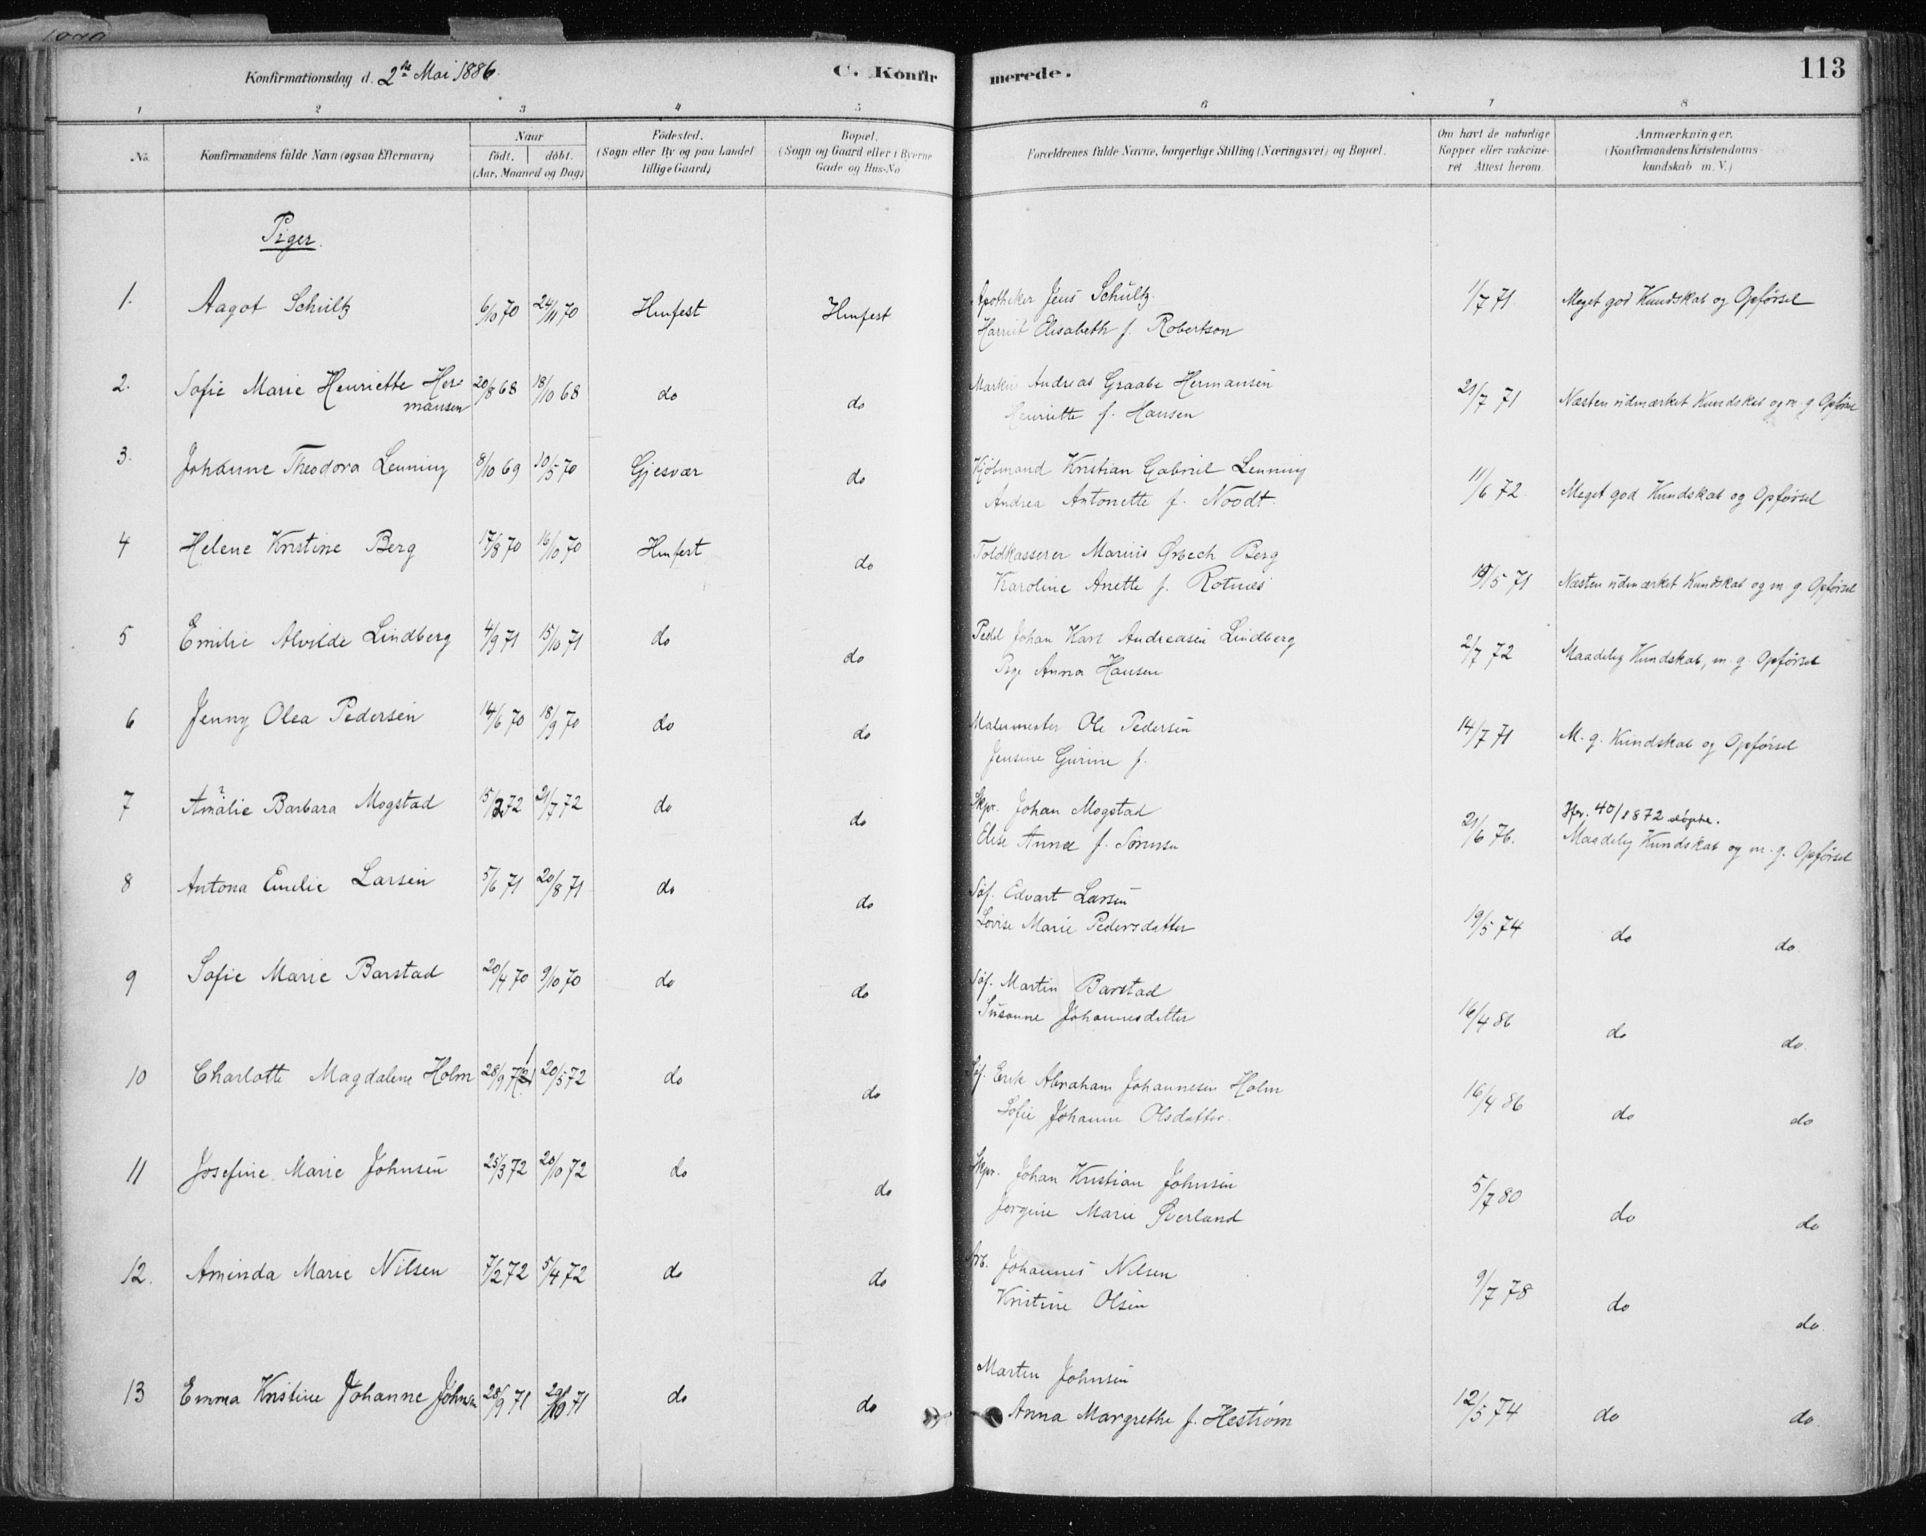 Konfirmationsdag d. 2den Mai 1886.
C. Konfir
merede.
113
1 2 3 4 5 6 7 8
No.
Konfirmandens fulde Navn (ogsaa Efternavn)
Naar
födt. döbt.
(Aar, Maaned og Dag)
Födested.
(Sogn eller By og paa Landet
tillige Gaard)
Bopæl.
(Sogn og Gaard eller i Byerne
Gade og Hus-No
Forældrenes fulde Navne, borgerlige Stilling (Næringsvei) og Bopæl.
Om havt de naturlige
Kopper eller vakcine-
ret Attest herom.
Anmærkninger.
(Konfirmandens Kristendoms-
kundskab m. V.)
Piger.
1. Aagot Schultz 6/10 70 24/11 70 Hmfest Hmfest Apotheker Jens Schultz. 1/7 71. Meget god Kundskab og Opførsel
Harriet Elisabeth f. Robertson
2. Sofie Marie Henriette Her- 20/8 68 18/10 68 do do Andreas Graabe Hermansen 21/7 71 Næsten udmærket Kundskab og m. g. Opførsel
mansen Henriette f. Hansen
3. Johanne Theodora Lenning 8/10 69 10/5 70 Gjesvær do Kjöbmand Kristian Gabriel Lenning 11/6 72 Meget god Kundskab og Opførsel
Andrea Antonette f. Noodt.
4 Helene Kristine Berg 17/8 70 16/10 70 Hmfest do Toldkasserer Marius Ørbech Berg 19/5 71 Næsten udmærket Kundskab og m. g. Opførsel
Karoline Anette f. Rotnes
5 Emilie Alvilde Lindberg 4/9 71 15/10 71 do do Johan Karl Andreasen Lindberg 2/7 72 Maadelig Kundskab, m. g. Opførsel
Pge Anna Hansen
6 Jenny Olea Pedersen 14/6 70 18/9 70 do do Malermester Ole Pedersen 14/7 71 M. g. Kundskab og Opførsel
Jensine Gurine f.
7 Amalie Barbara Mogstad 15/2 72 21/7 72 do do Skpr. Johan Mogstad 21/6 76. Hfr. 40/1872 døpte.
Elise Anna f. Sörensen Maadelig Kundskab og m. g. Opførsel
8 Antona Emelie Larsen 5/6 71 20/8 71 do do Søf. Edvart Larsen
Lovise Marie Pedersdatter 19/5 74 do do
9 Sofie Marie Barstad 20/4 70 9/10 70 do do Søf. Martin Barstad
Susanne Johannesdatter 16/4 86 do do
10 Charlotte Magdalene Holm 28/9 71 20/5 72 do do Søf. Erik Abraham Johannesen Holm 16/4 86 do do
Sofie Johanne Olsdatter.
11 Josefine Marie Johnsen 25/3 72 20/10 72 do do Skpr. Johan Kristian Johnsen 5/7 80 do do
Jørgine Marie Øverland
12. Aminda Marie Nilsen 7/2 72 5/4 72 do do Arb. Johannes Nilsen 9/7 78 do do
Kristine Olsen
13 Emma Kristine Johanne Johnsen 28/9 71 29/10 71 do do Martin Johnsen 12/5 74 do do
Anna Margrethe f. Hestrøm